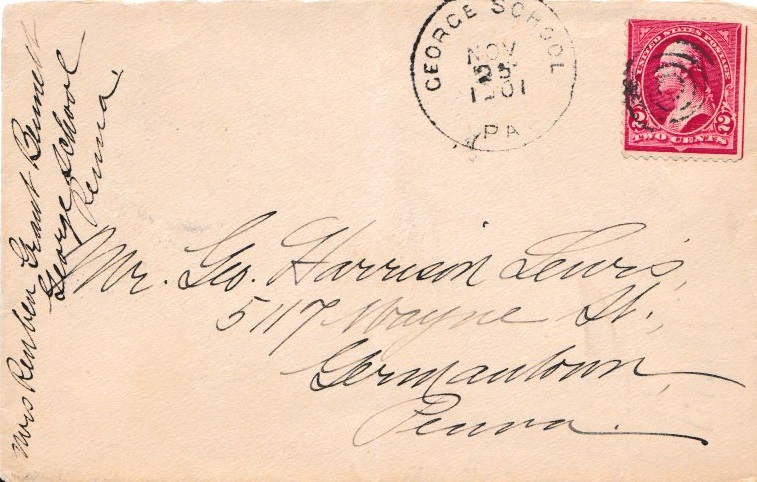 GEORGE SCHOOL
NOV
25
1901
PA
UNITED STATES POSTAGE
2 2
TWO CENTS
Mrs Reuben Grant Bennett
George School
Penna.
Mr. Geo. Harrison Lewis,
5117 Wayne St.,
Germantown,
Penna.